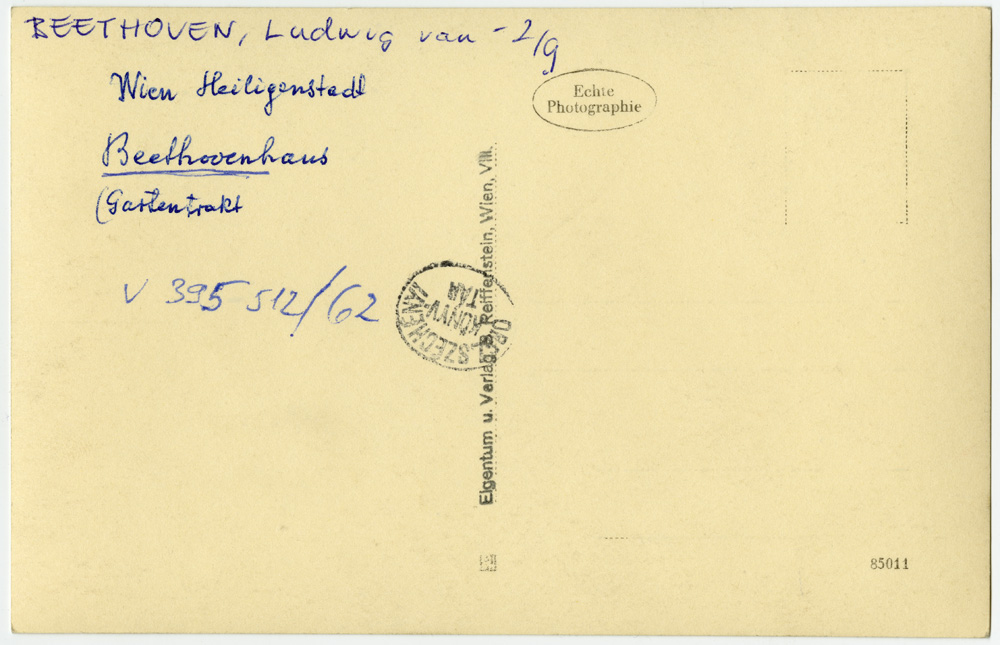 BEETHOVEN, Ludwig van - 2/9
Wien Heiligenstadt
Beethovenhaus
(Gartentrakt
V 395 512/62
ORSZ. SZÉCHÉNYI
KÖNYV
TÁR
Eigentum u. Verlag B. Reiffenstein, Wien, VIII.
Echte
Photographie
85011